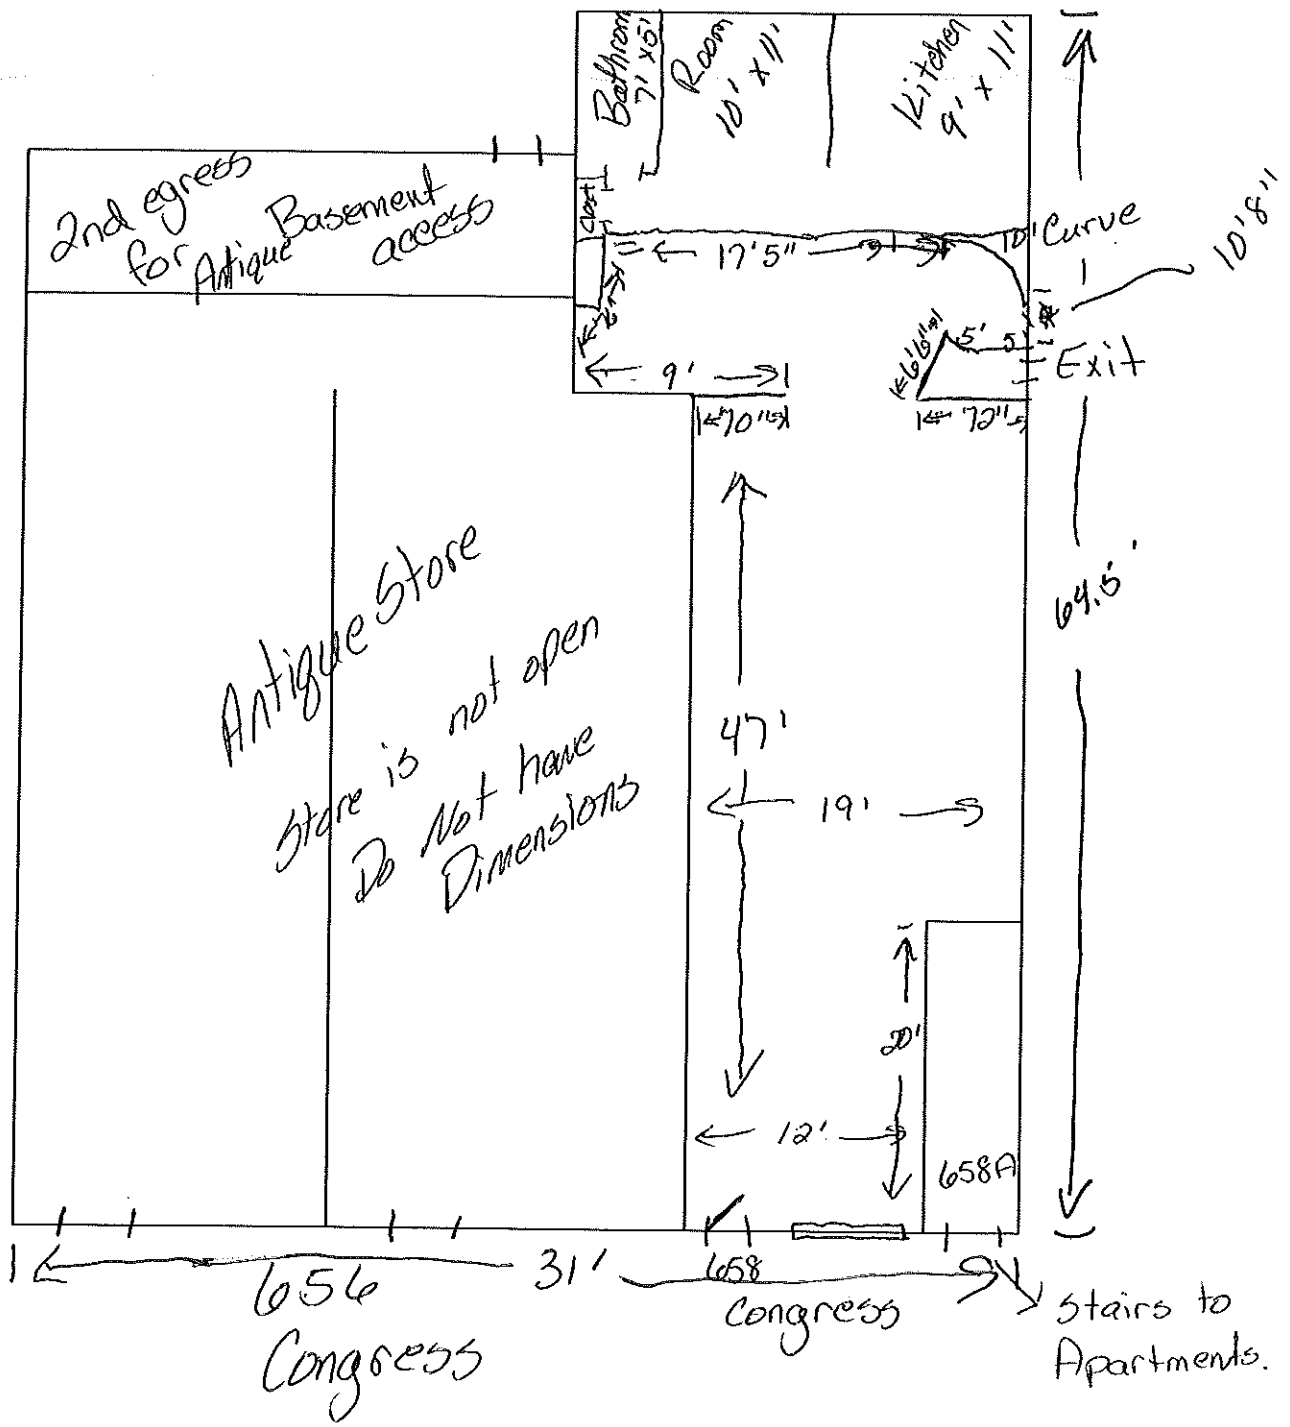 Bathroom
7' x 5'
Room
10' x 11'
Kitchen
9' x 11'
2nd egress
for Antique
Basement
access
Closet
17'5"
10' Curve
10'8"
9'
6'6"
5'
5'
Exit
70"
72"
64.5'
Antique Store
Store is not open
Do Not have
Dimensions
47'
19'
20'
12'
658A
31'
656
Congress
658
Congress
Stairs to
Apartments.